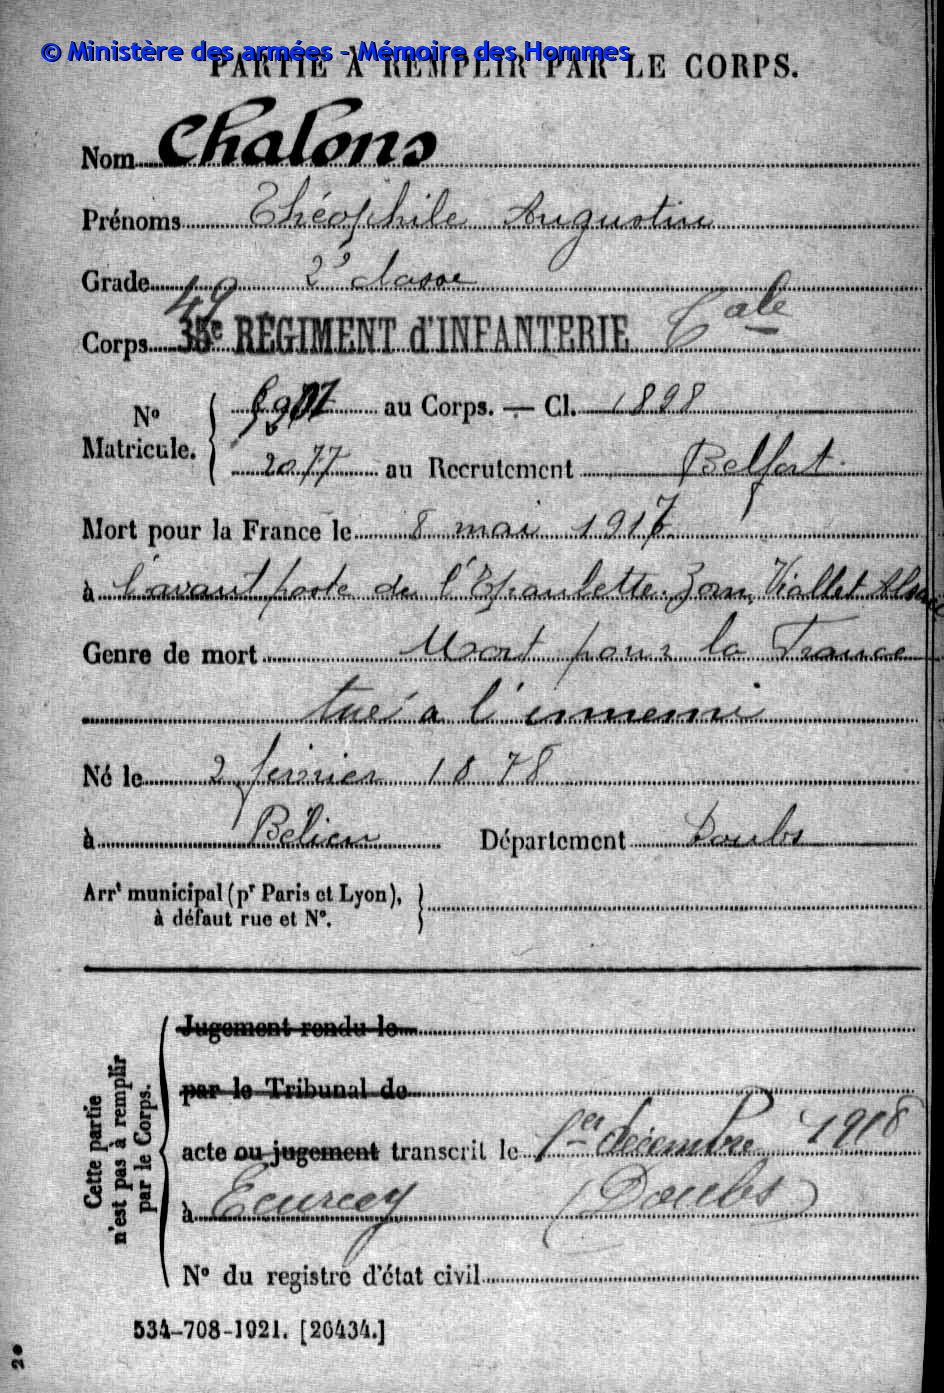 © Ministère des armées - Mémoire des Hommes
PARTIE À REMPLIR PAR LE CORPS.
Nom Chalons
Prénoms Théophile Augustin
Grade 2e classe
49
Corps 35e RÉGIMENT d'INFANTERIE Cale
No Matricule.
au Corps. — Cl. 1898
2077 au Recrutement Belfort.
Mort pour la France le 8 mai 1917
à l'avant poste de l'Epaulette. Alsace
Genre de mort Mort pour la France
tué à l'ennemi
Né le 2 février 1878
à Bélieu Département Doubs
Arrt municipal (pr Paris et Lyon),
à défaut rue et No.
Cette partie
n'est pas à remplir
par le Corps.
Jugement rendu le
par le Tribunal de
acte ou jugement transcrit le 1er décembre 1918
à Ecurcey (Doubs)
No du registre d'état civil
534-708-1921. [26434.]